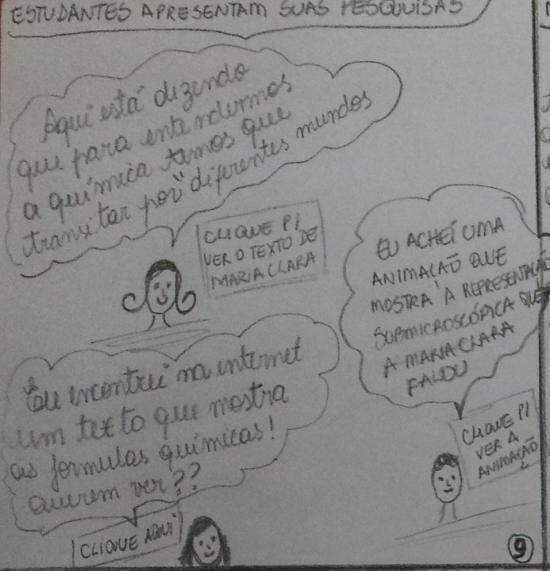 ESTUDANTES APRESENTAM SUAS PESQUISAS
Aqui está dizendo
que para entendermos
a química temos que
transitar por "diferentes mundos
CLIQUE P/
VER O TEXTO DE
MARIA CLARA
EU ACHEI UMA
ANIMAÇÃO QUE
MOSTRA A REPRESENTAÇÃO
SUBMICROSCÓPICA QUE
A MARIA CLARA
FALOU
CLIQUE P/
VER A
ANIMAÇÃO
Eu encontrei na internet
um texto que mostra
as formulas químicas!
Querem ver??
CLIQUE AQUI
9